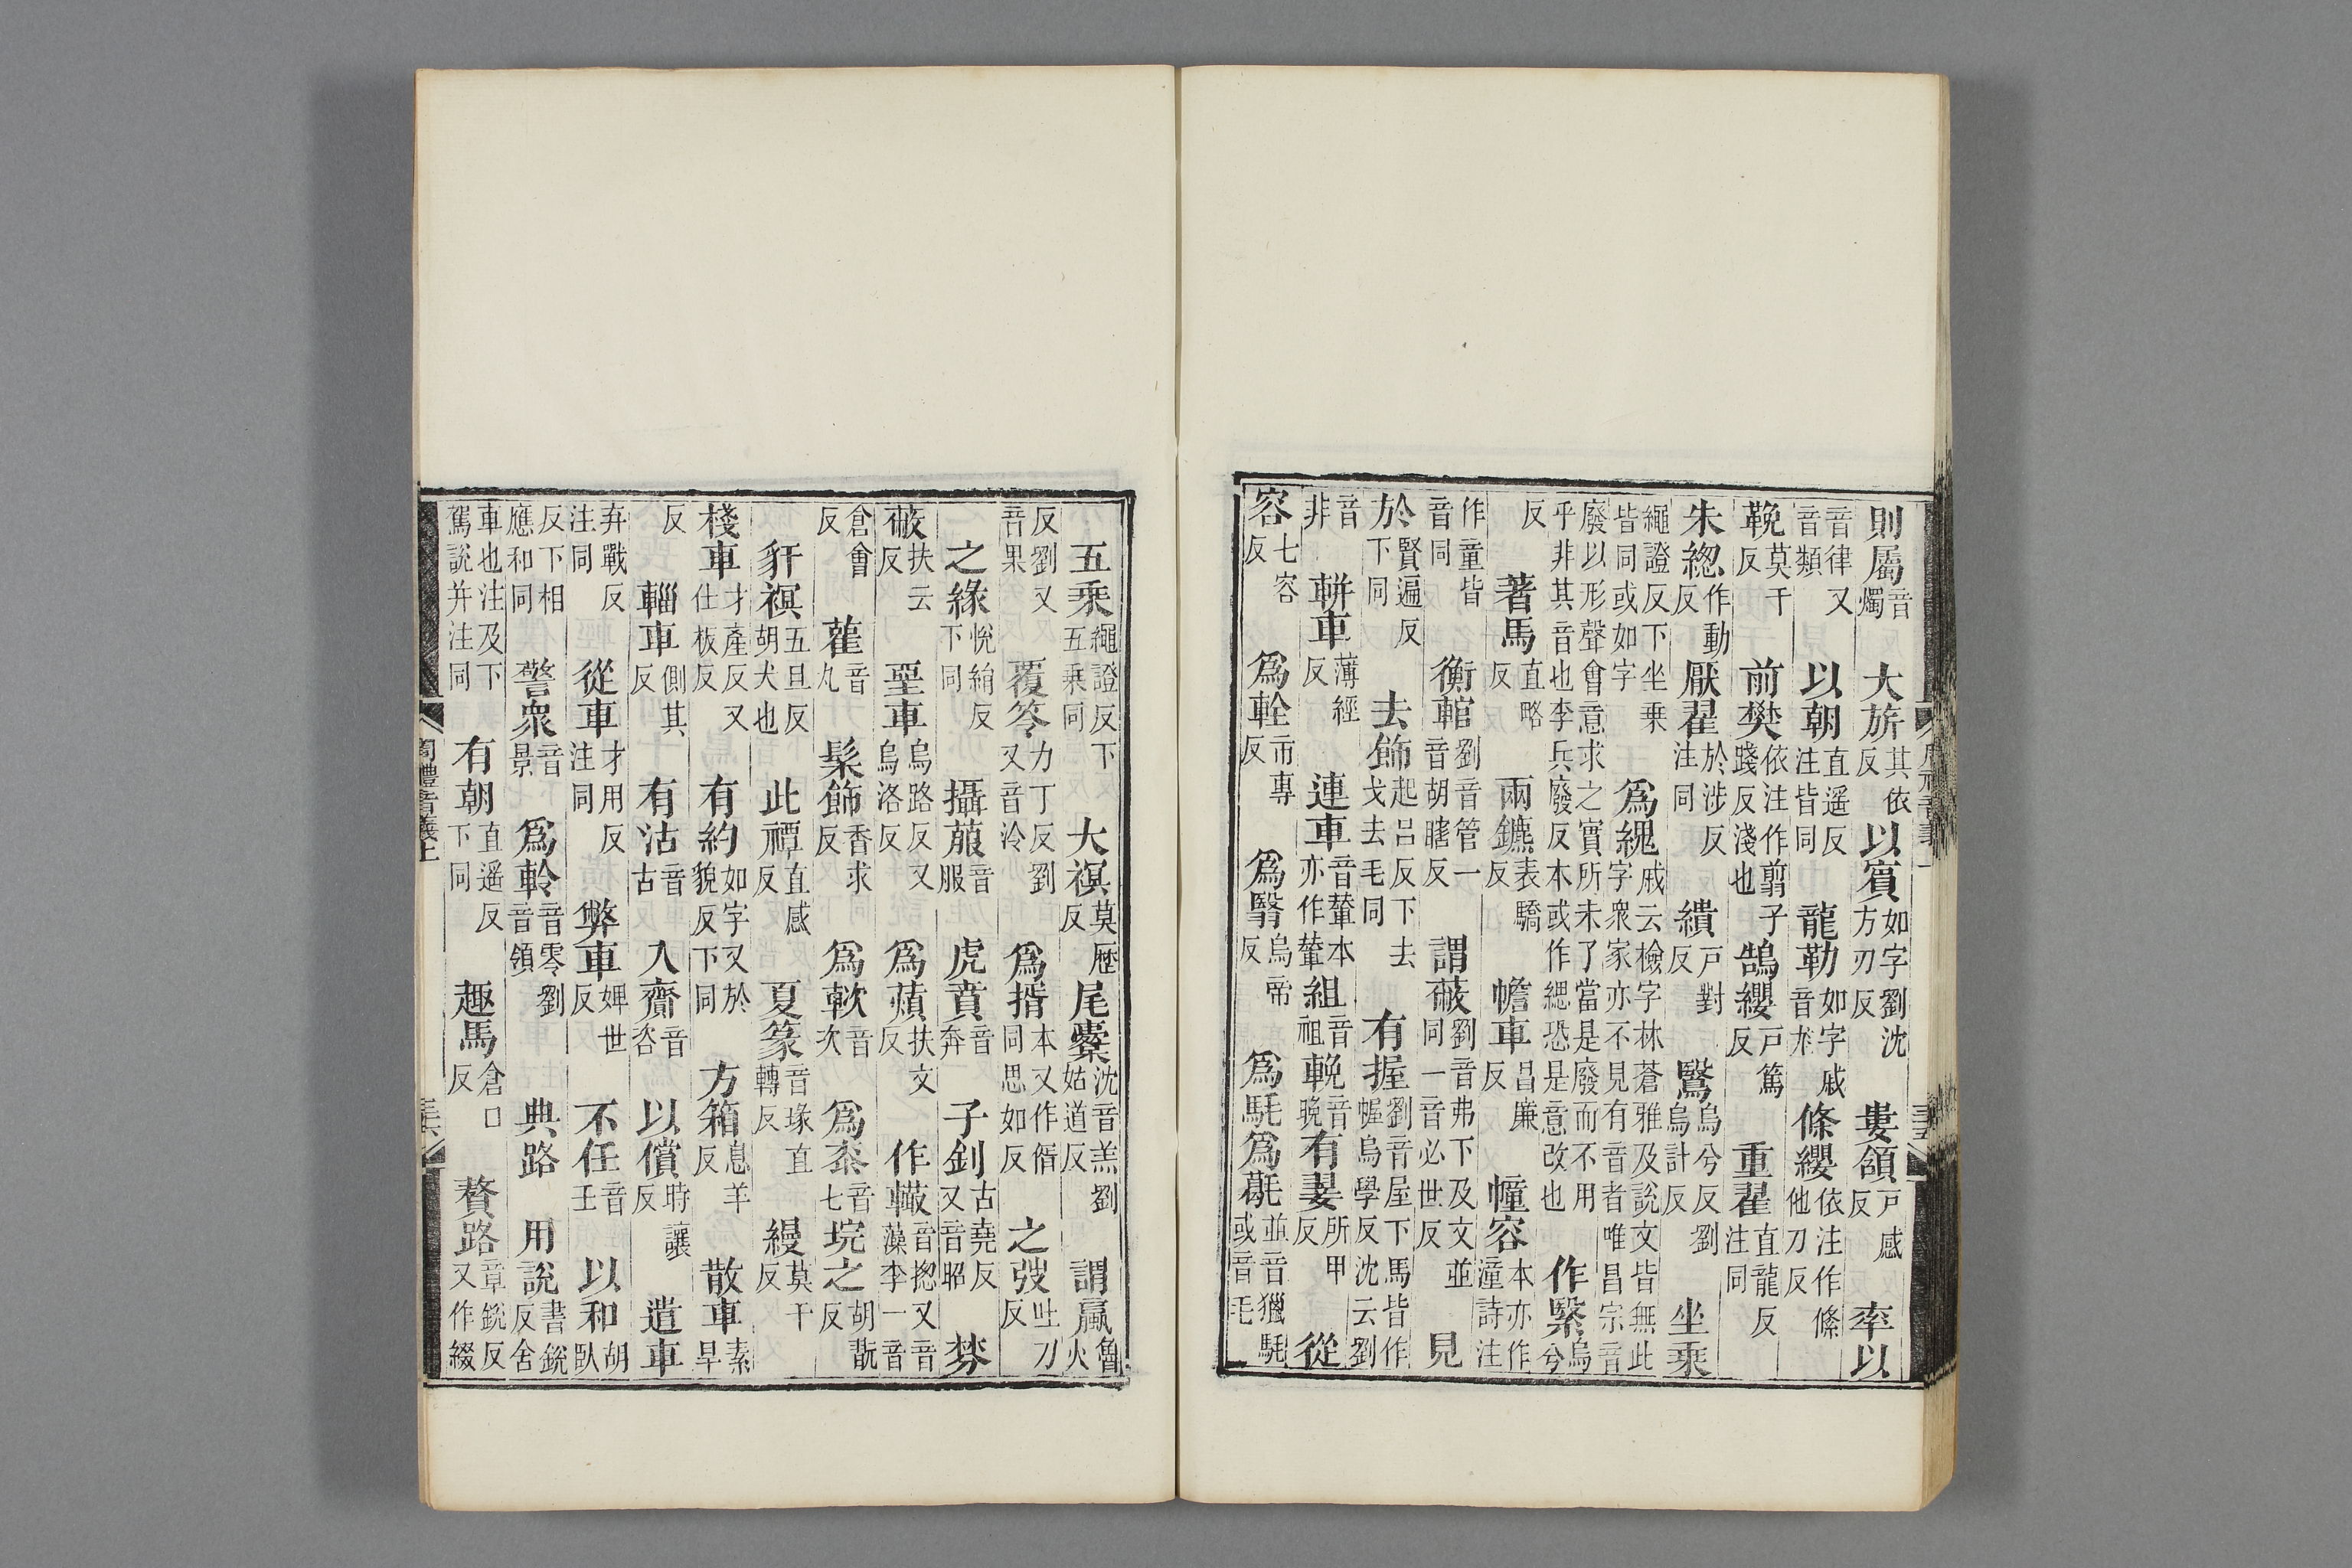 則屬音燭 大旂其依反 以賓如字劉沈方刃反 婁頷戸感反 率以
音律又音類 以朝直遥反注皆同 龍勒如字戚音尨 條纓依注作絛他刀反
鞔莫干反 前樊依注作翦子踐反淺也 鵠纓戸篤反 重翟直龍反注同
朱緫作動反 厭翟於涉反注同 繢戸對反 鷖烏兮反劉烏計反 坐乘
繩證反下坐乘皆同或如字 爲緦戚云檢字林蒼雅及說文皆無此字衆家亦不見有音者唯昌宗音
廢以形聲會意求之實所未了當是廢而不用乎非其音也李兵廢反本或作緦恐是意改也 作繄烏兮
反 著馬直略反 兩鑣表驕反 幨車昌廉反 幢容本亦作潼詩注作
作童皆音同 衡輨劉音管一音胡瞎反 謂蔽劉音弗下及文並同一音必世反 見
於賢遍反下同 去飾起呂反下去戈去毛同 有握劉音屋下馬皆作幄烏學反沈云劉
音非 輧車薄經反 連車音輦本亦作輦 組音祖 輓音晚 有翣所甲反 從
容七容反 爲輇市專反 爲翳烏帝反 爲毦爲毼並音獵毦或音毛
五乘繩證反下五乘同 大𧜀莫歷反 尾櫜沈音羔劉姑道反 謂羸魯火
反劉又音果 覆笭力丁反劉又音泠 爲揟本又作偦同思如反 之弢吐刀反
之緣悅絹反下同 攝菔音服 虎賁音奔 子釗古堯反又音昭 棼
蔽扶云反 堊車烏路反又烏洛反 爲薠扶文反 作轈音揔又音藻李一音
倉會反 雚音丸 髤飾香求反 爲軟音次 爲桼音七 垸之胡翫反
豻𧜀五旦反胡犬也 此禫直感反 夏篆音瑑直轉反 縵莫干反
棧車才產反又仕板反 有約如字又於貌反下同 方箱息羊反 散車素旱
反 輜車側其反 有沽音古 入齎音咨 以償時讓反 遣車
弃戰反注同 從車才用反注同 弊車婢世反 不任音壬 以和胡臥
反下相應和同 警衆音景 爲軨音零劉音領 典路 用說書銳反舍
車也注及下駕說并注同 有朝直遥反下同 趣馬倉口反 贅路章銳反又作綴
周禮音義上